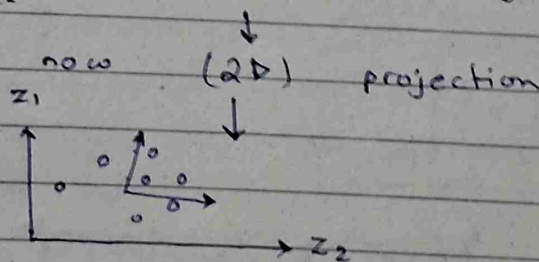 now (2D) projection
z₁
z₂